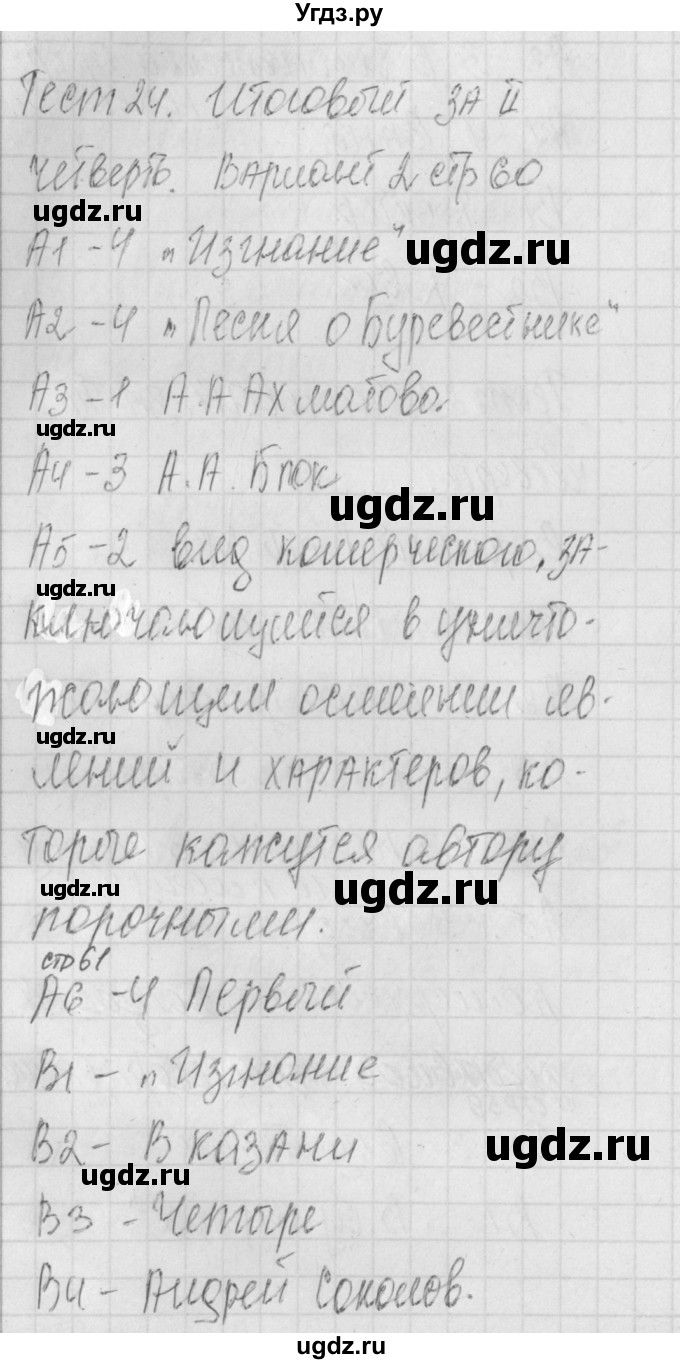 Угдз.ру
Тест 24. Итоговый за II
четверть. Вариант 2 стр 60
ugdz.ru
А1 - 4 „Изгнание"
ugdz.ru
А2 - 4 „Песня о Буревестнике"
А3 - 1 А.А Ахматова.
ugdz.ru
А4 - 3 А.А. Блок
ugdz.ru
А5 - 2 вид комерческого, за-
ugdz.ru
ключающийся в уничто-
жающем осмеянии яв-
ugdz.ru
лений и характеров, ко-
торые кажутся автору
ugdz.ru
ugdz.ru
порочными.
стр 61
А6 - 4 Первый
В1 - „Изгнание
В2 - В казани
ugdz.ru
ugdz.ru
В3 - Четыре
В4 - Андрей Соколов.
ugdz.ru